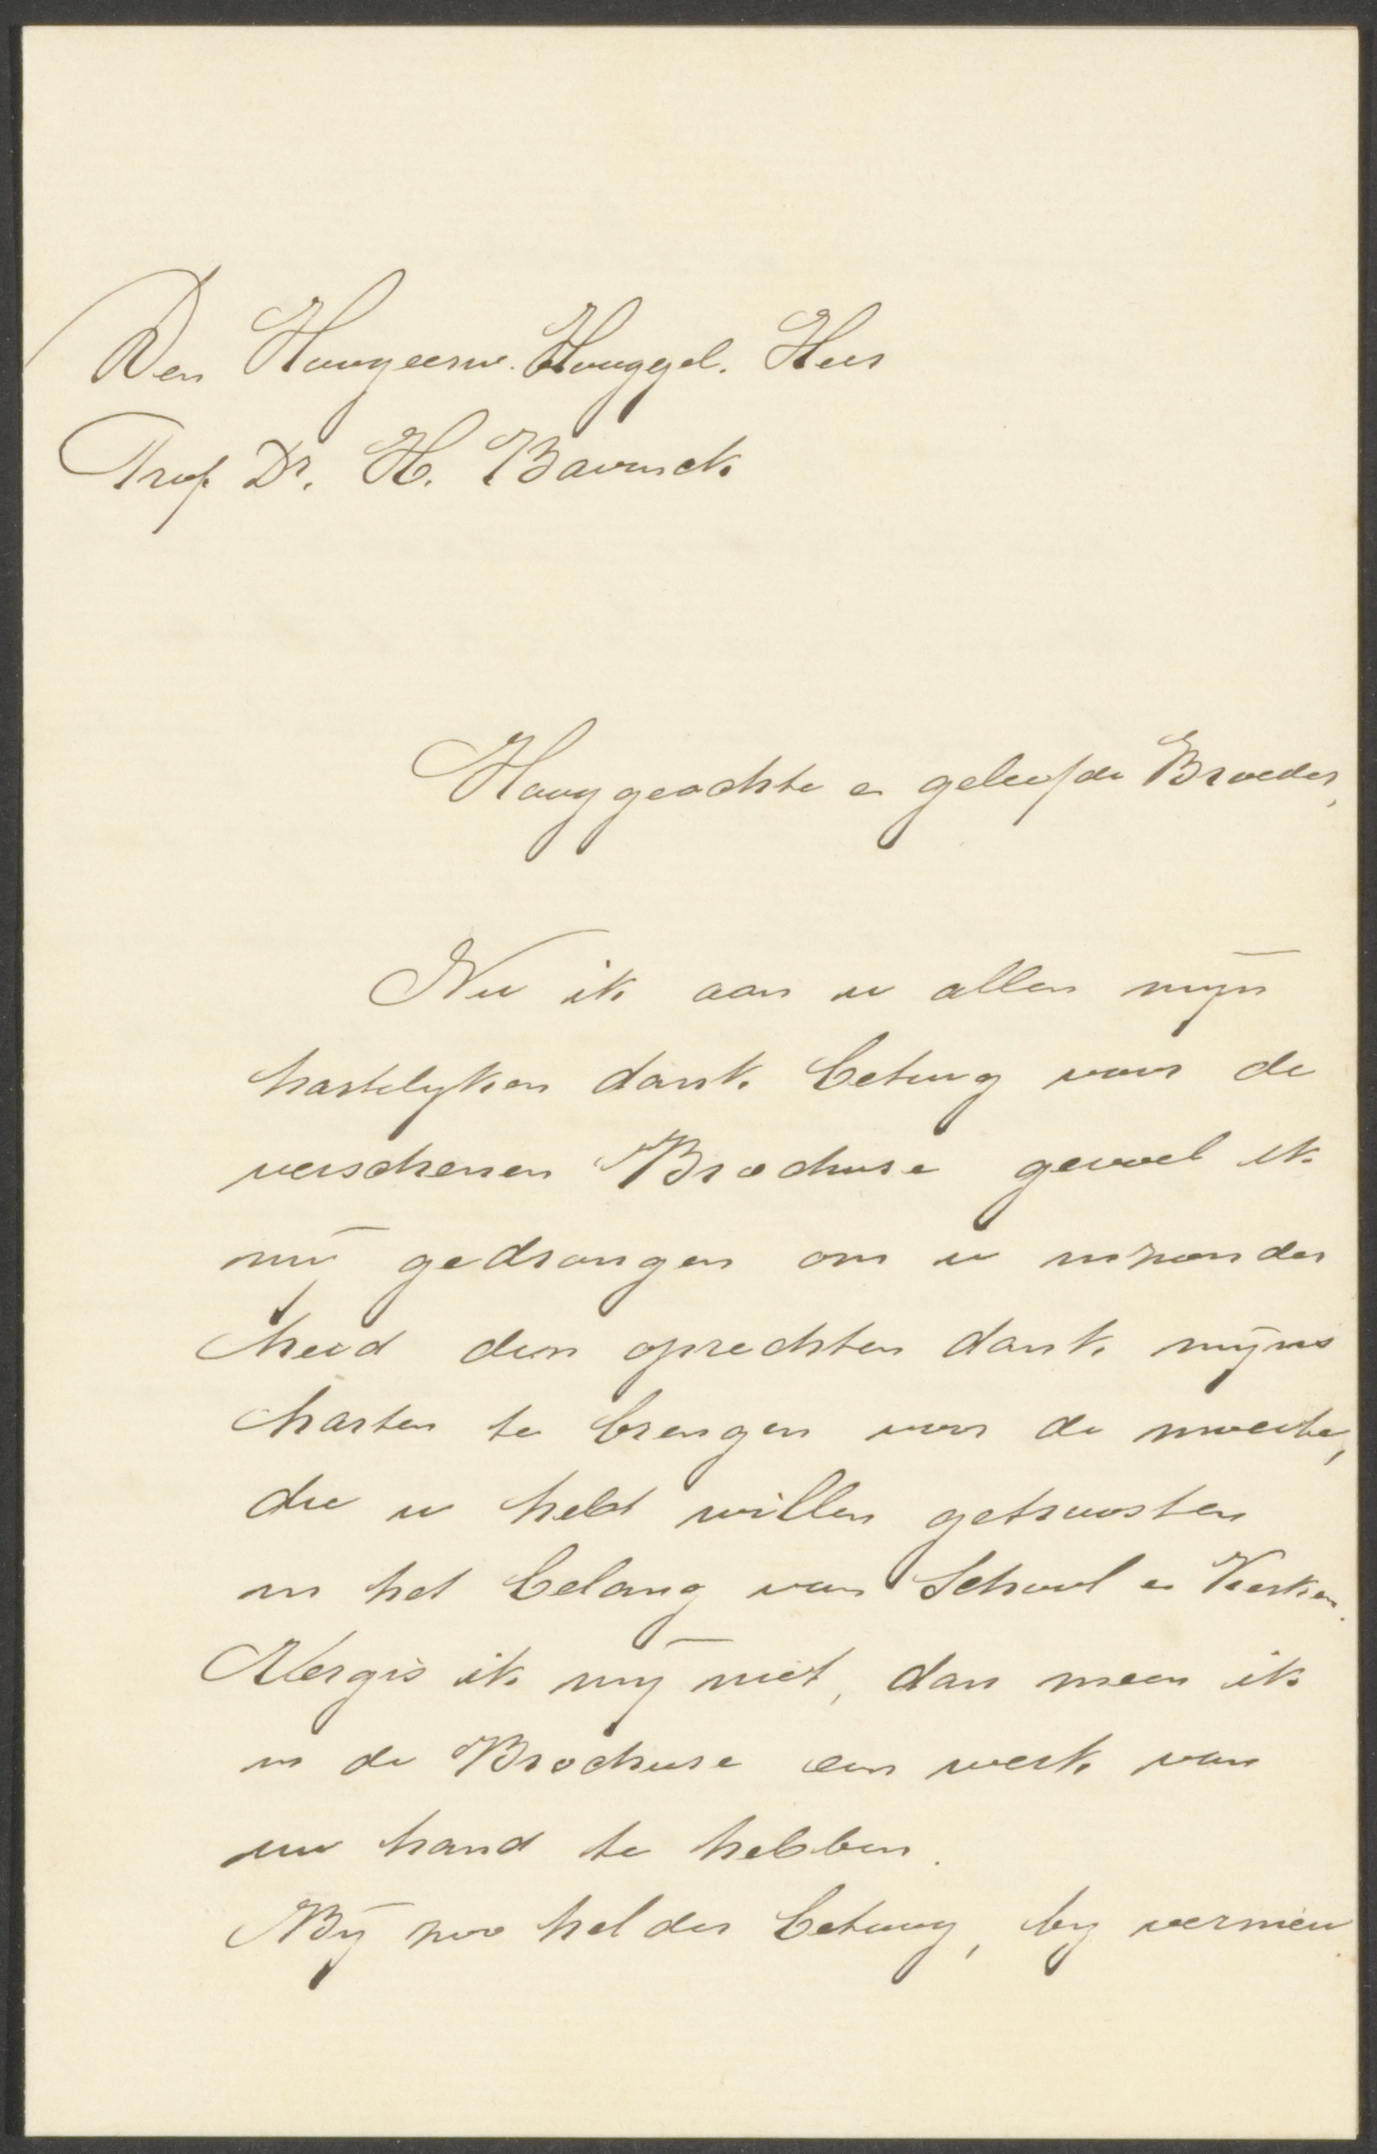 Den Hoogeerw. Hooggel. Heer
Prof Dr. H. Bavinck
Hooggeachte en geliefde Broeder,
Nu ik aan u allen mijn
hartelyken dank betuig voor de
verschenen Brochure gevoel ik
mij gedrongen om u inzonder
heid den oprechten dank mijns
harten te brengen voor de moeite,
die u hebt willen getroosten
in het belang van School en Kerken.
Vergis ik mij niet, dan meen ik
in de Brochure een werk van
uw hand te hebben.
Bij zoo helder betoog, by vernieu